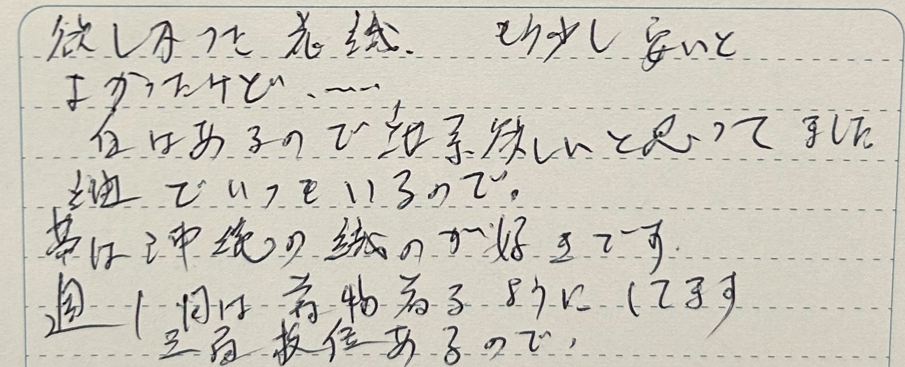 欲しかった花織. もう少し安いと
よかったけど.……
位はあるので 欲しいと思ってました
紬でいつもいるので。
帯は沖縄の織のが好きです.
週1回は着物着るようにしてます
三百枚位あるので,